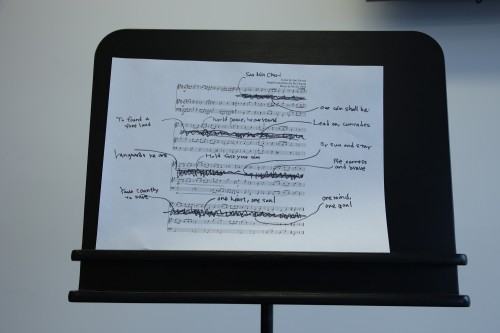 San Min Chu-I
our aim shall be
To found a
free land
World peace, be our stand
Lead on, comrades
Vanguards ye are
Hold fast your aim
By sun and star
Be earnest
and brave
Your country
to save
one heart, one soul
one mind,
one goal